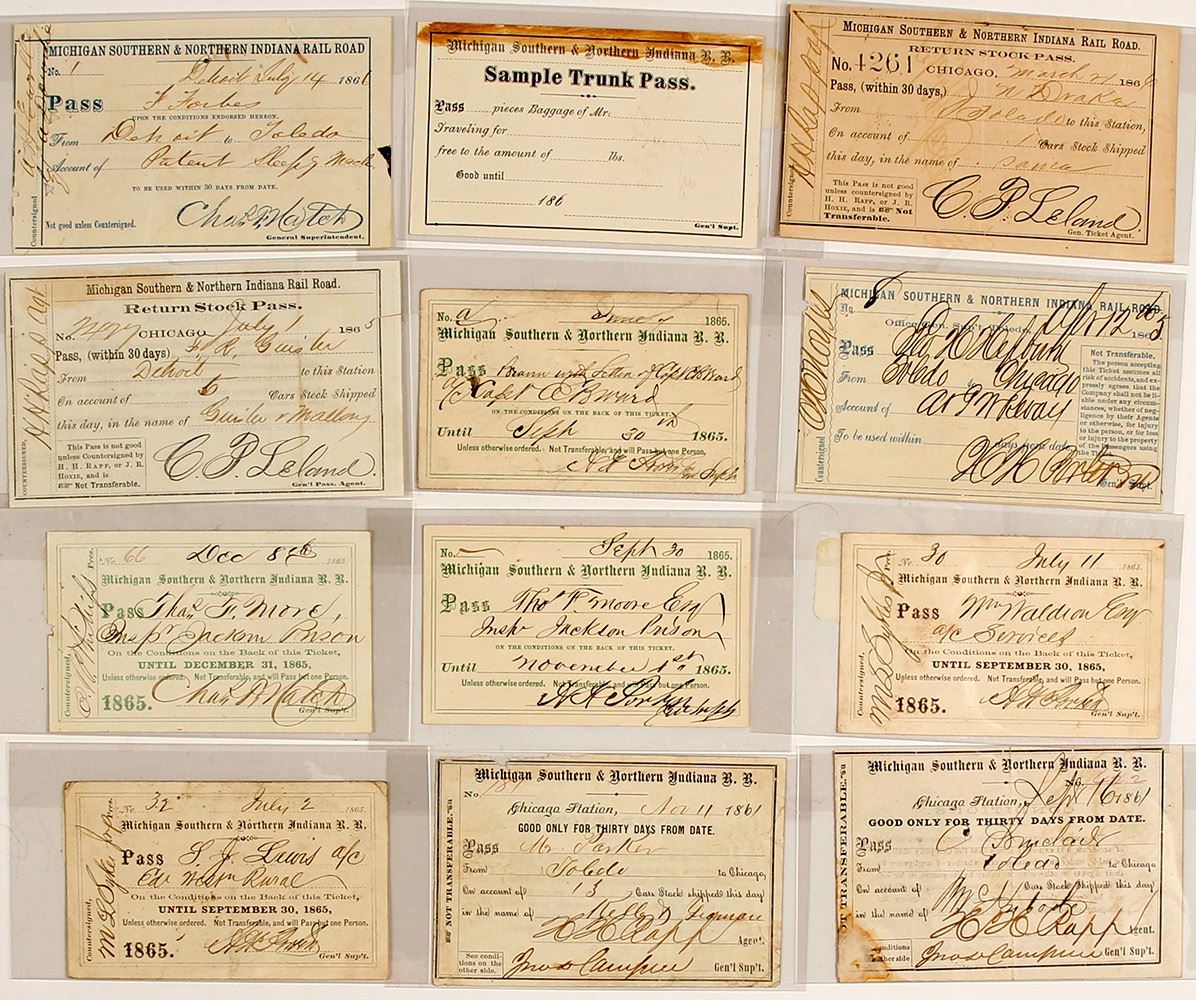 MICHIGAN SOUTHERN & NORTHERN INDIANA RAIL ROAD
No. 1 Detroit July 14 1861
Pass F Forbes
UPON THE CONDITIONS ENDORSED HEREON.
From Detroit to Toledo
Account of Patent Sleepg
TO BE USED WITHIN 30 DAYS FROM DATE.
Not good unless Countersigned.
Chas F Hatch
General Superintendent.
Countersigned
Michigan Southern & Northern Indiana R. R.
Sample Trunk Pass.
Pass pieces Baggage of Mr.
Traveling for
free to the amount of lbs.
Good until
186
Gen'l Supt.
MICHIGAN SOUTHERN & NORTHERN INDIANA RAIL ROAD.
RETURN STOCK PASS.
No. 4261 CHICAGO, March 21 186
Pass, (within 30 days,) J N Drake
From Toledo to this Station,
On account of 1 Cars Stock Shipped
this day, in the name of same
This Pass is not good
unless countersigned by
H. H. RAPP, or J. R.
HOXIE, and is Not
Transferable.
C. P. Leland
Gen. Ticket Agent.
Countersigned
H H Rapp agt
Michigan Southern & Northern Indiana Rail Road.
Return Stock Pass.
No. CHICAGO July 1865
Pass, (within 30 days) F. R. Guisler
From Detroit to this Station
On account of 5 Cars Stock Shipped
this day, in the name of Guisler & Mallory
This Pass is not good
unless Countersigned by
H. H. RAPP, or J. R.
HOXIE, and is
Not Transferable.
C. P. Leland.
Gen'l Pass. Agent.
COUNTERSIGNED,
H H Rapp agt
No. a June 1865.
Michigan Southern & Northern Indiana R. R.
Pass Bearer with Letter of Capt E B Ward
a/c Capt E B Ward
ON THE CONDITIONS ON THE BACK OF THIS TICKET,
Until Sept 30 1865.
Unless otherwise ordered. Not Transferable and will Pass but one Person.
MICHIGAN SOUTHERN & NORTHERN INDIANA RAIL ROAD.
No. 8
Office Gen. Sup't. Toledo, 12 1865
Pass Geo H Hepburn
From Toledo to Chicago
Account of
To be used within days from date
Not Transferable.
The person accepting
this Ticket assumes all
risk of accidents, and ex-
pressly agrees that the
Company shall not be li-
able under any circum-
stances, whether of negli-
gence by their Agents
or otherwise, for injury
to the person, or for loss
or injury to the property
of the Passengers using
the Ticket.
Gen'l Supt.
Countersigned
No. 66 Dec 8th 1865.
Michigan Southern & Northern Indiana R. R.
Pass Thos. F. More,
Inspr Jackson Prison
On the Conditions on the Back of this Ticket,
UNTIL DECEMBER 31, 1865,
Unless otherwise ordered. Not Transferable, and will Pass but one Person.
1865. Chas F Hatch
Gen'l Sup't.
Countersigned,
Pres.
No. Sept 30 1865.
Michigan Southern & Northern Indiana R. R.
Pass Tho' F. Moore Esq
Inspr Jackson Prison
ON THE CONDITIONS ON THE BACK OF THIS TICKET.
Until November 1st 1865.
Unless otherwise ordered. Not Transferable and will Pass but one Person.
No. 30 July 11 1865.
Michigan Southern & Northern Indiana R. R.
Pass Wm Waldron Esq
a/c Services
On the Conditions on the Back of this Ticket,
UNTIL SEPTEMBER 30, 1865,
Unless otherwise ordered. Not Transferable, and will Pass but one Person.
1865.
Gen'l Sup't.
Countersigned,
M L Sykes Jr Pres.
No. 32 July 2 1865.
Michigan Southern & Northern Indiana R. R.
Pass S. J. Lewis a/c
Ed Westn Rural
On the Conditions on the Back of this Ticket,
UNTIL SEPTEMBER 30, 1865,
Unless otherwise ordered. Not Transferable, and will Pass but one Person.
1865.
Gen'l Sup't.
Countersigned,
M L Sykes Jr
Michigan Southern & Northern Indiana R. R.
No.
Chicago Station, Nov 11 1861
GOOD ONLY FOR THIRTY DAYS FROM DATE.
Pass Mr. Parker
From Toledo to Chicago,
On account of 13 Cars Stock shipped this day
in the name of
H H Rapp Agent.
See condi-
tions on the
other side.
Gen'l Sup't.
NOT TRANSFERABLE.
Michigan Southern & Northern Indiana R. R.
No.
Chicago Station, Sept 16 1861
GOOD ONLY FOR THIRTY DAYS FROM DATE.
Pass
From Toledo to Chicago
On account of Cars Stock shipped this day
in the name of
H H Rapp Agent.
conditions
other side
Gen'l Sup't.
NOT TRANSFERABLE.